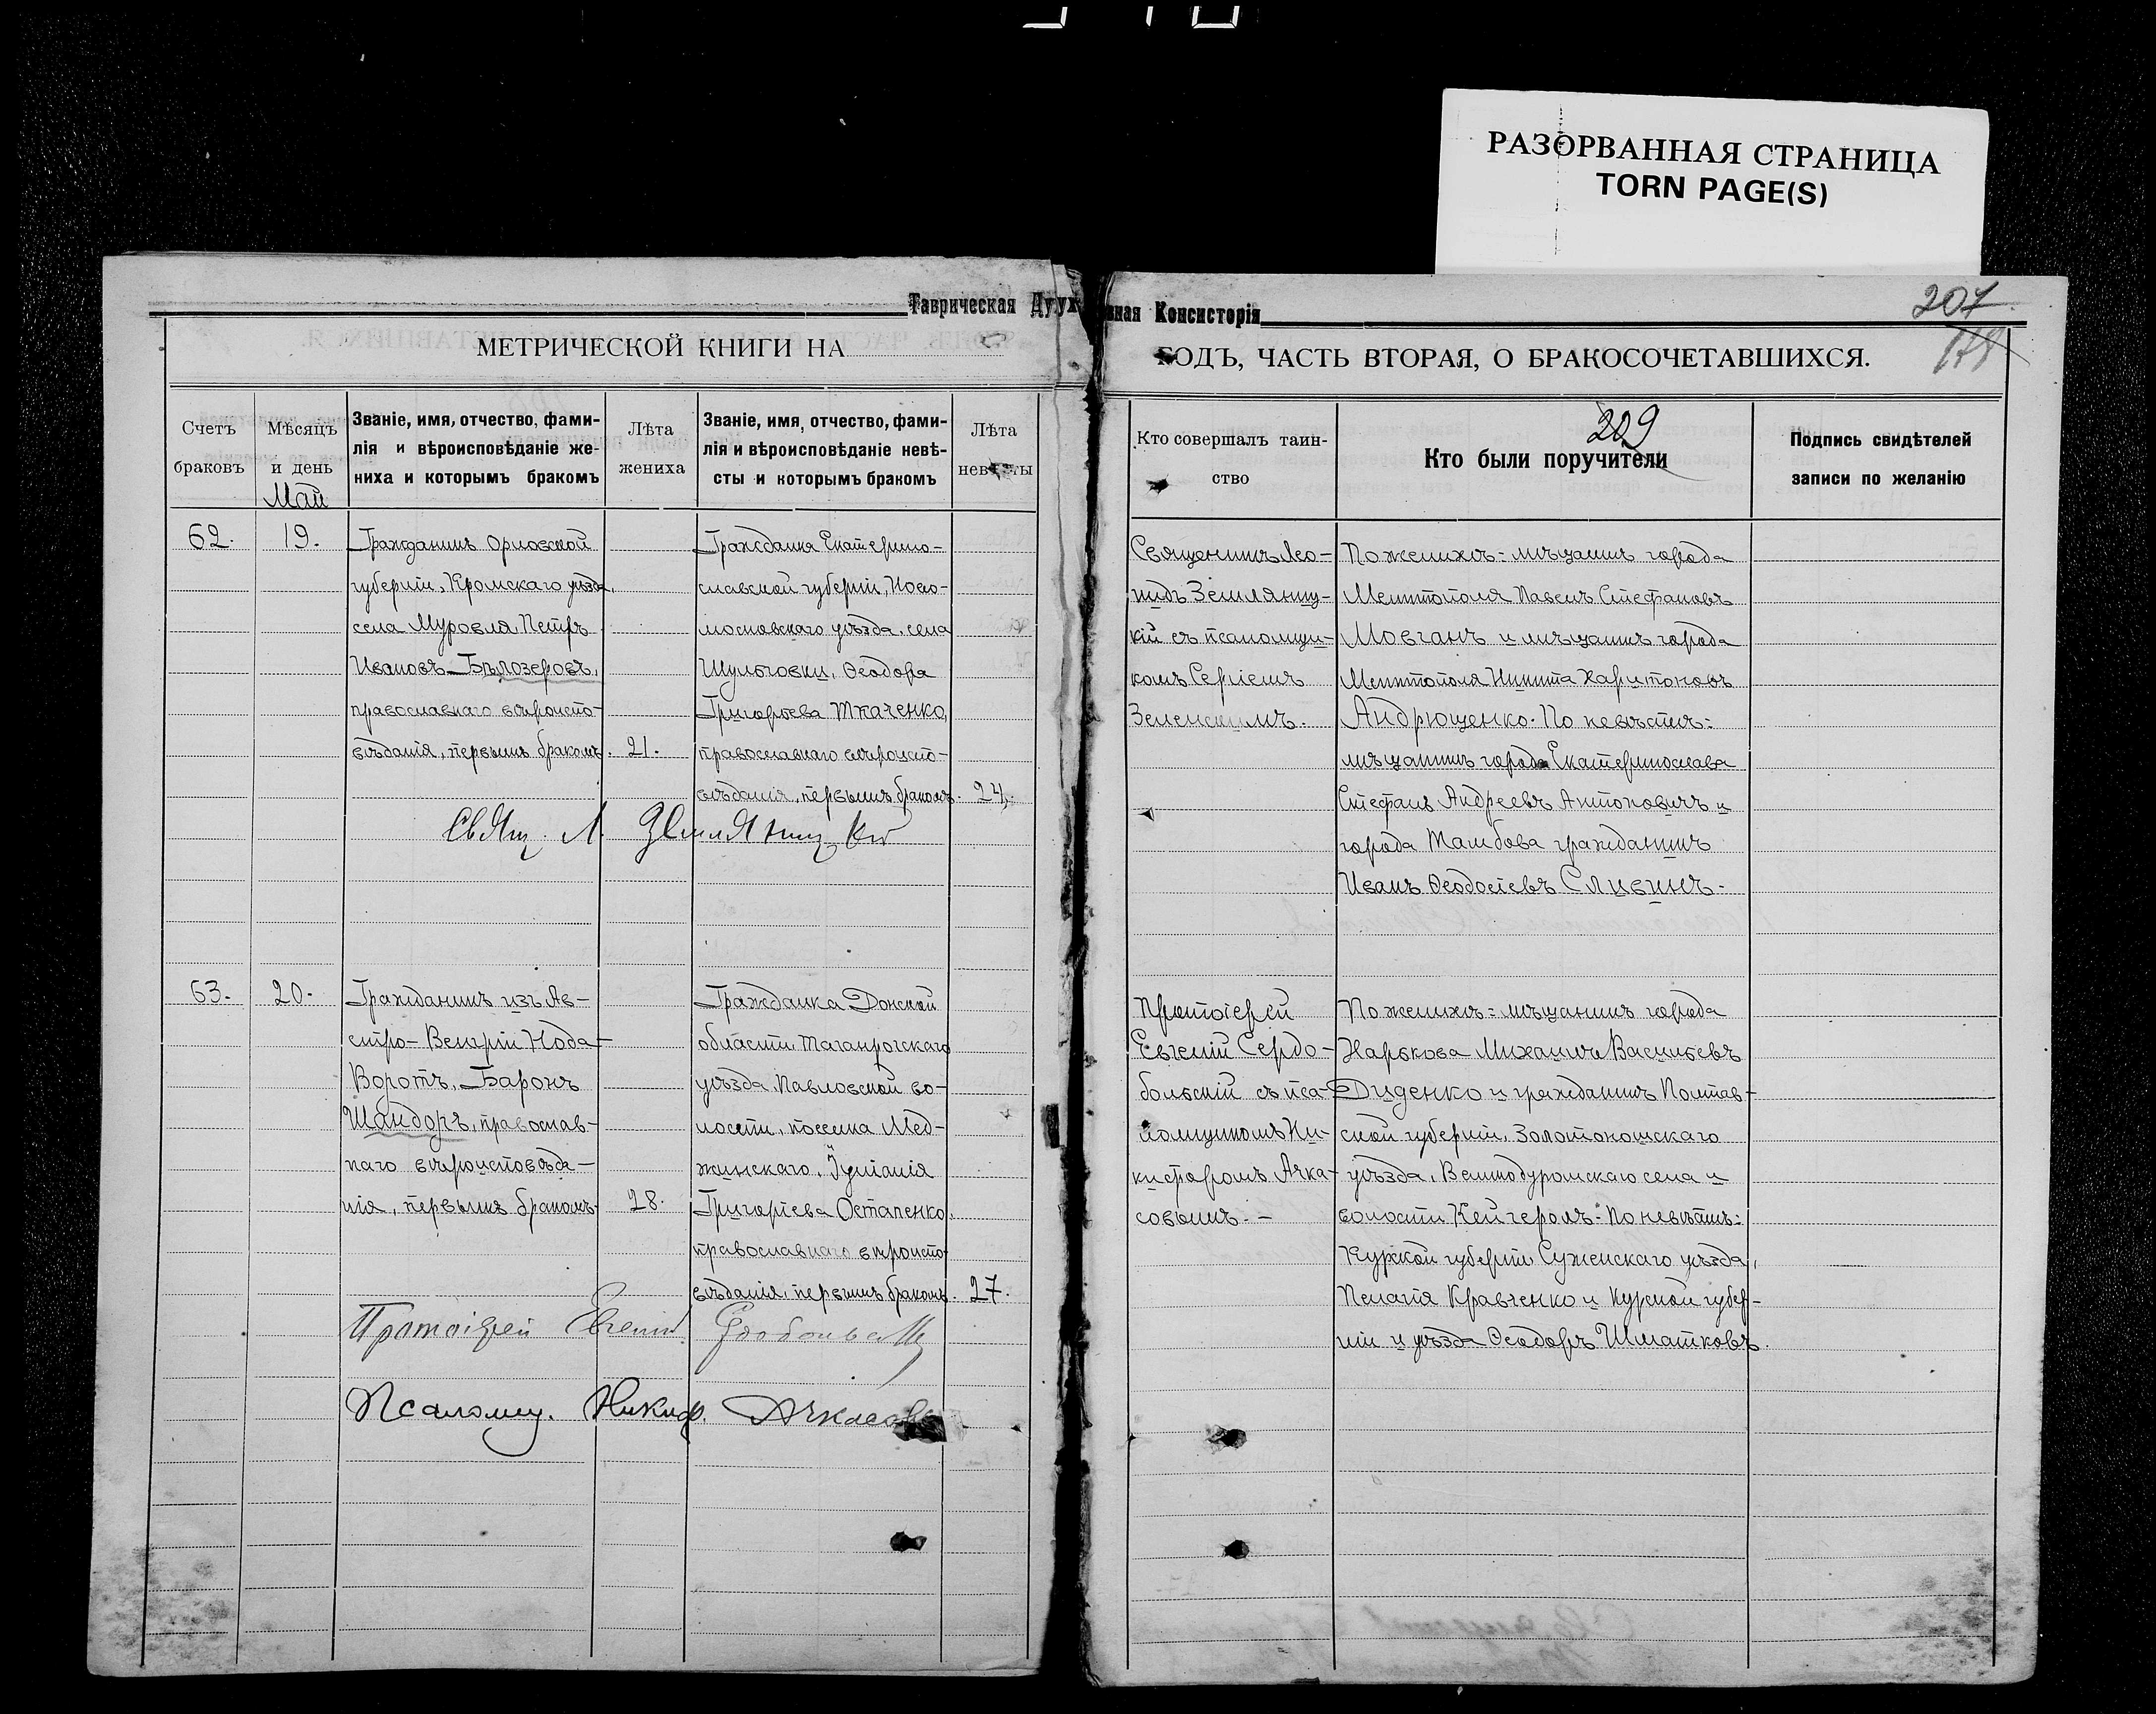 РАЗОРВАННАЯ СТРАНИЦА
TORN PAGE(S)
Таврическая Духовная Консисторія
207
МЕТРИЧЕСКОЙ КНИГИ НА
ГОДЪ, ЧАСТЬ ВТОРАЯ, О БРАКОСОЧЕТАВШИХСЯ.
Счетъ
браковъ
Мѣсяцъ
и день
Май
Званіе, имя, отчество, фами-
лія и вѣроисповѣданіе же-
ниха и которымъ бракомъ
Лѣта
жениха
Званіе, имя, отчество, фами-
лія и вѣроисповѣданіе невѣ-
сты и которымъ бракомъ
Лѣта
невѣсты
Кто совершалъ таин-
ство
209
Кто были поручители
Подпись свидѣтелей
записи по желанію
62.
19.
Гражданинъ Орловской
губерніи, Кромскаго уѣзда,
села Муровля Петръ
Ивановъ Бѣлозеровъ,
православнаго вѣроиспо-
вѣданія, первымъ бракомъ.
21.
Гражданка Екатерино-
славской губерніи, Ново-
московскаго уѣзда, села
Шульговки, Ѳеодора
Григорьева Ткаченко,
православнаго вѣроиспо-
вѣданія, первымъ бракомъ.
24.
Священникъ Лео-
нидъ Земляниц-
кій съ псаломщи-
комъ Сергіемъ
Зеленскимъ.
По женихѣ: мѣщанинъ города
Мелитополя Павелъ Стефановъ
Мовчанъ и мѣщанинъ города
Мелитополя Никита Харитоновъ
Андрющенко. По невѣстѣ:
мѣщанинъ города Екатеринослава
Стефанъ Андреевъ Антоновичъ и
города Тамбова гражданинъ
Иванъ Ѳеодосіевъ Сливинъ.
Свящ. Л. Земляницкій
63.
20.
Гражданинъ изъ Ав-
стро-Венгріи Нода-
Воротъ, Баронъ
Шандоръ, православ-
наго вѣроисповѣда-
нія, первымъ бракомъ.
28.
Гражданка Донской
области Таганрогскаго
уѣзда Павловской во-
лости, поселка Мед-
жинскаго, Іуліанія
Григоріева Остапенко,
православнаго вѣроиспо-
вѣданія, первымъ бракомъ.
27.
Протоіерей
Евгеній Сердо-
больскій съ пса-
ломщикомъ Ни-
кифоромъ Ачка-
совымъ.-
По женихѣ: мѣщанинъ города
Харькова Михаилъ Васильевъ
Диденко и гражданинъ Полтав-
ской губерніи, Золотоношскаго
уѣзда, Великобуромскаго села и
волости Кейгеромъ. По невѣстѣ:
Курской губерніи Суженскаго уѣзда,
Пелагія Кравченко и Курской губер-
ніи и уѣзда Ѳеодоръ Шматковъ.
Протоіерей Евгеній Сердобольскій
Псаломщ. Никиф. Ачкасовъ